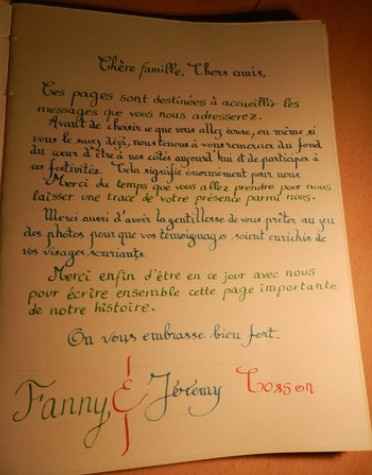 Chère famille, Chers amis,
Ces pages sont destinées à accueillir les
messages que vous nous adresserez.
Avant de choisir ce que vous allez écrire, ou même si
vous le savez déjà, nous tenons à vous remercier du fond
du cœur d'être à nos côtés aujourd'hui et de participer à
ces festivités. Cela signifie énormément pour nous.
Merci du temps que vous allez prendre pour nous
laisser une trace de votre présence parmi nous.
Merci aussi d'avoir la gentillesse de vous prêter au jeu
des photos pour que vos témoignages soient enrichis de
vos visages souriants.
Merci enfin d'être en ce jour avec nous
pour écrire ensemble cette page importante
de notre histoire.
On vous embrasse bien fort.
Fanny & Jérémy